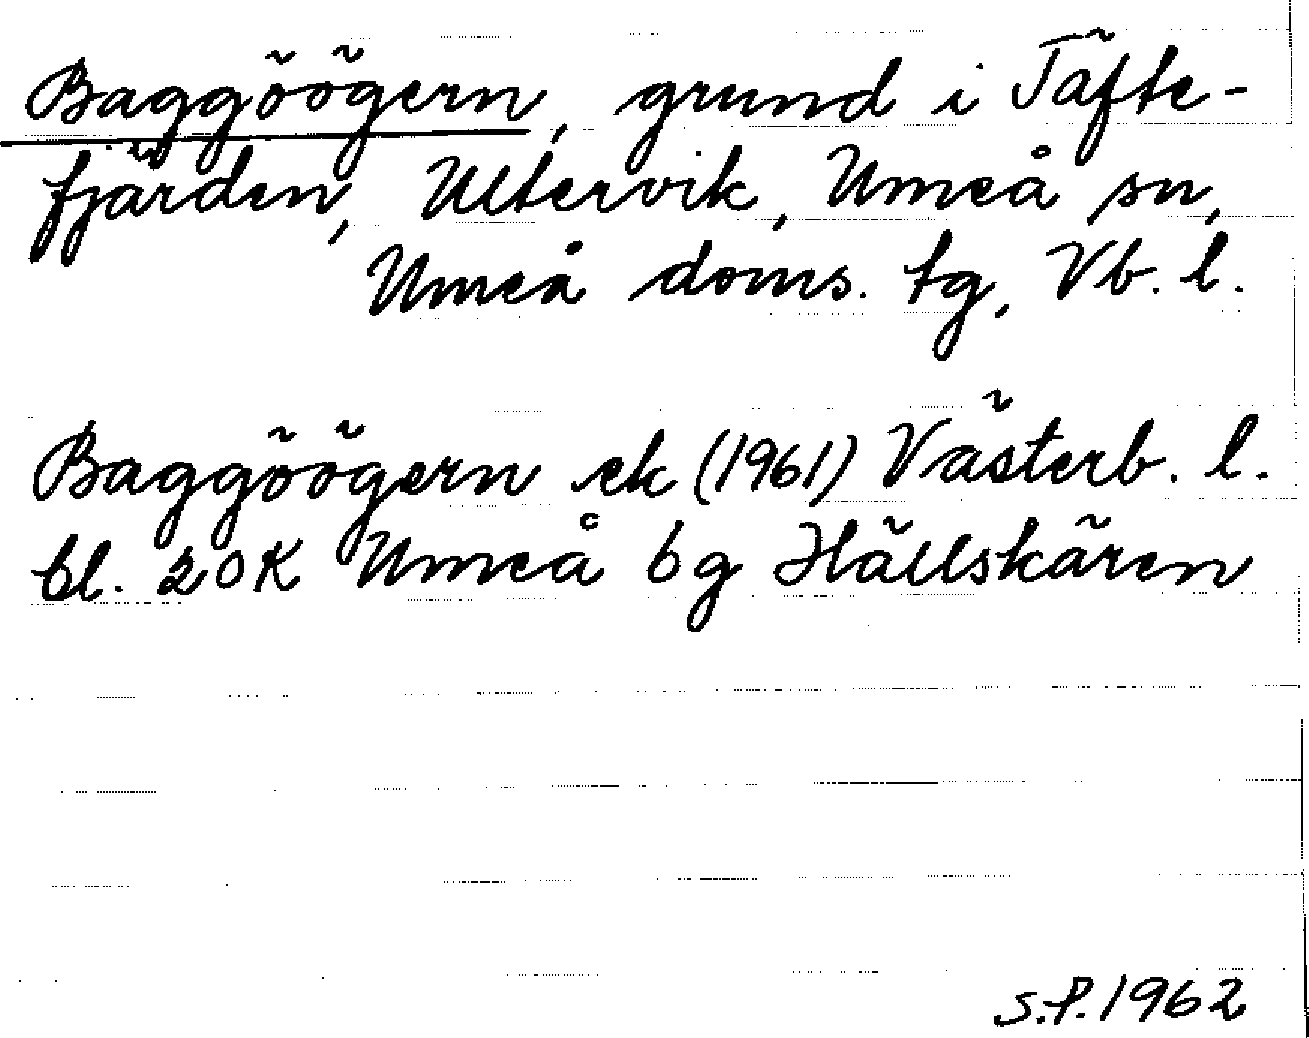 Baggöögern, grund i Täfte-
fjärden, Ultervik, Umeå sn,
Umeå doms. tg, Vb. l.
Baggöögern ek (1961) Västerb. l.
bl. 20K Umeå 6g Hällskären
S.P. 1962